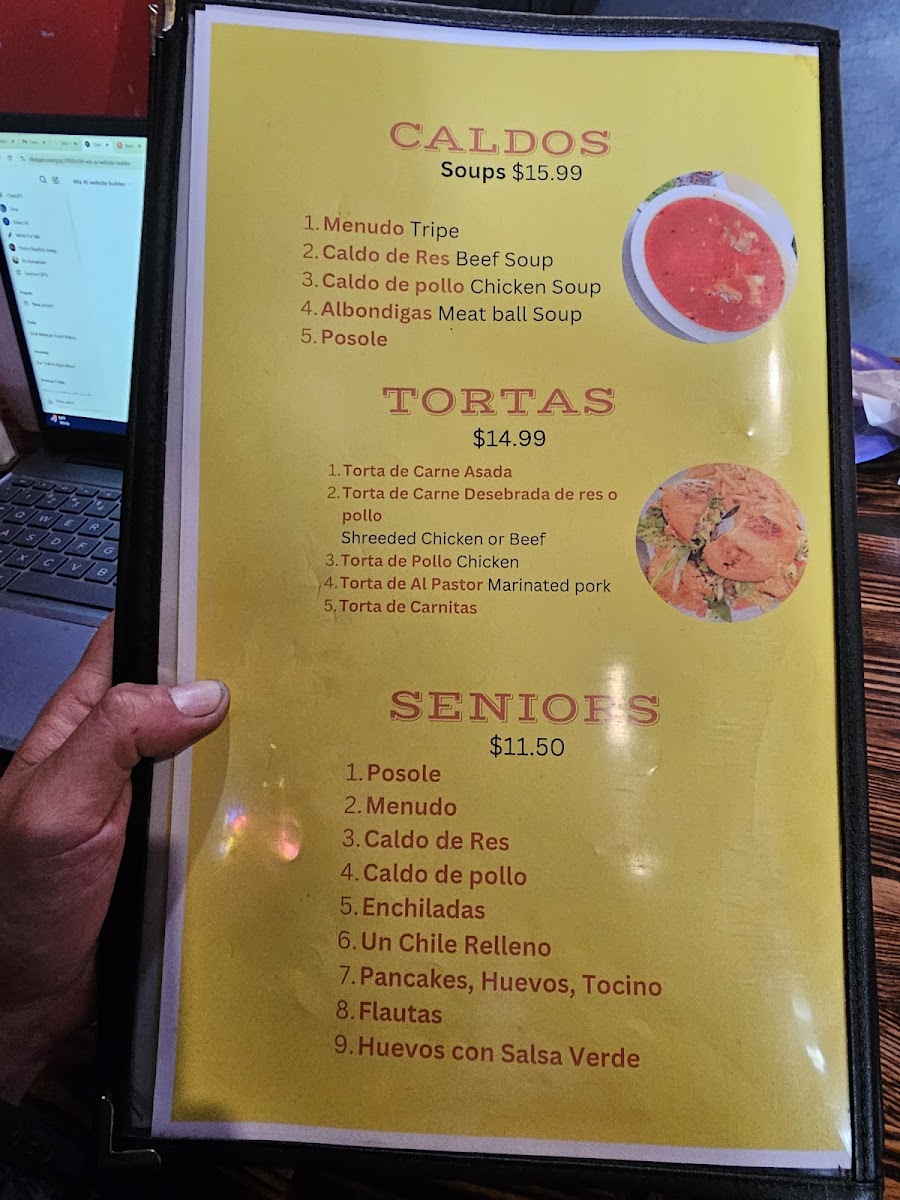 CALDOS
Soups $15.99
1. Menudo Tripe
2. Caldo de Res Beef Soup
3. Caldo de pollo Chicken Soup
4. Albondigas Meat ball Soup
5. Posole
TORTAS
$14.99
1. Torta de Carne Asada
2. Torta de Carne Desebrada de res o
pollo
Shreeded Chicken or Beef
3. Torta de Pollo Chicken
4. Torta de Al Pastor Marinated pork
5. Torta de Carnitas
SENIORS
$11.50
1. Posole
2. Menudo
3. Caldo de Res
4. Caldo de pollo
5. Enchiladas
6. Un Chile Relleno
7. Pancakes, Huevos, Tocino
8. Flautas
9. Huevos con Salsa Verde
Wix AI website builder
New project
Q W E R
A S D F G
X C V B